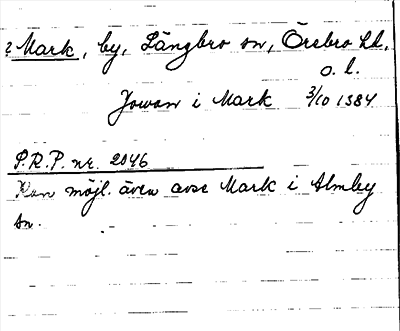 ? Mark, by, Längbro sn, Örebro hd,
o. l.
Jowan i Mark 3/10 1384
S.R.P. nr. 2046
Kan möjl. även avse Mark i Almby
sn.